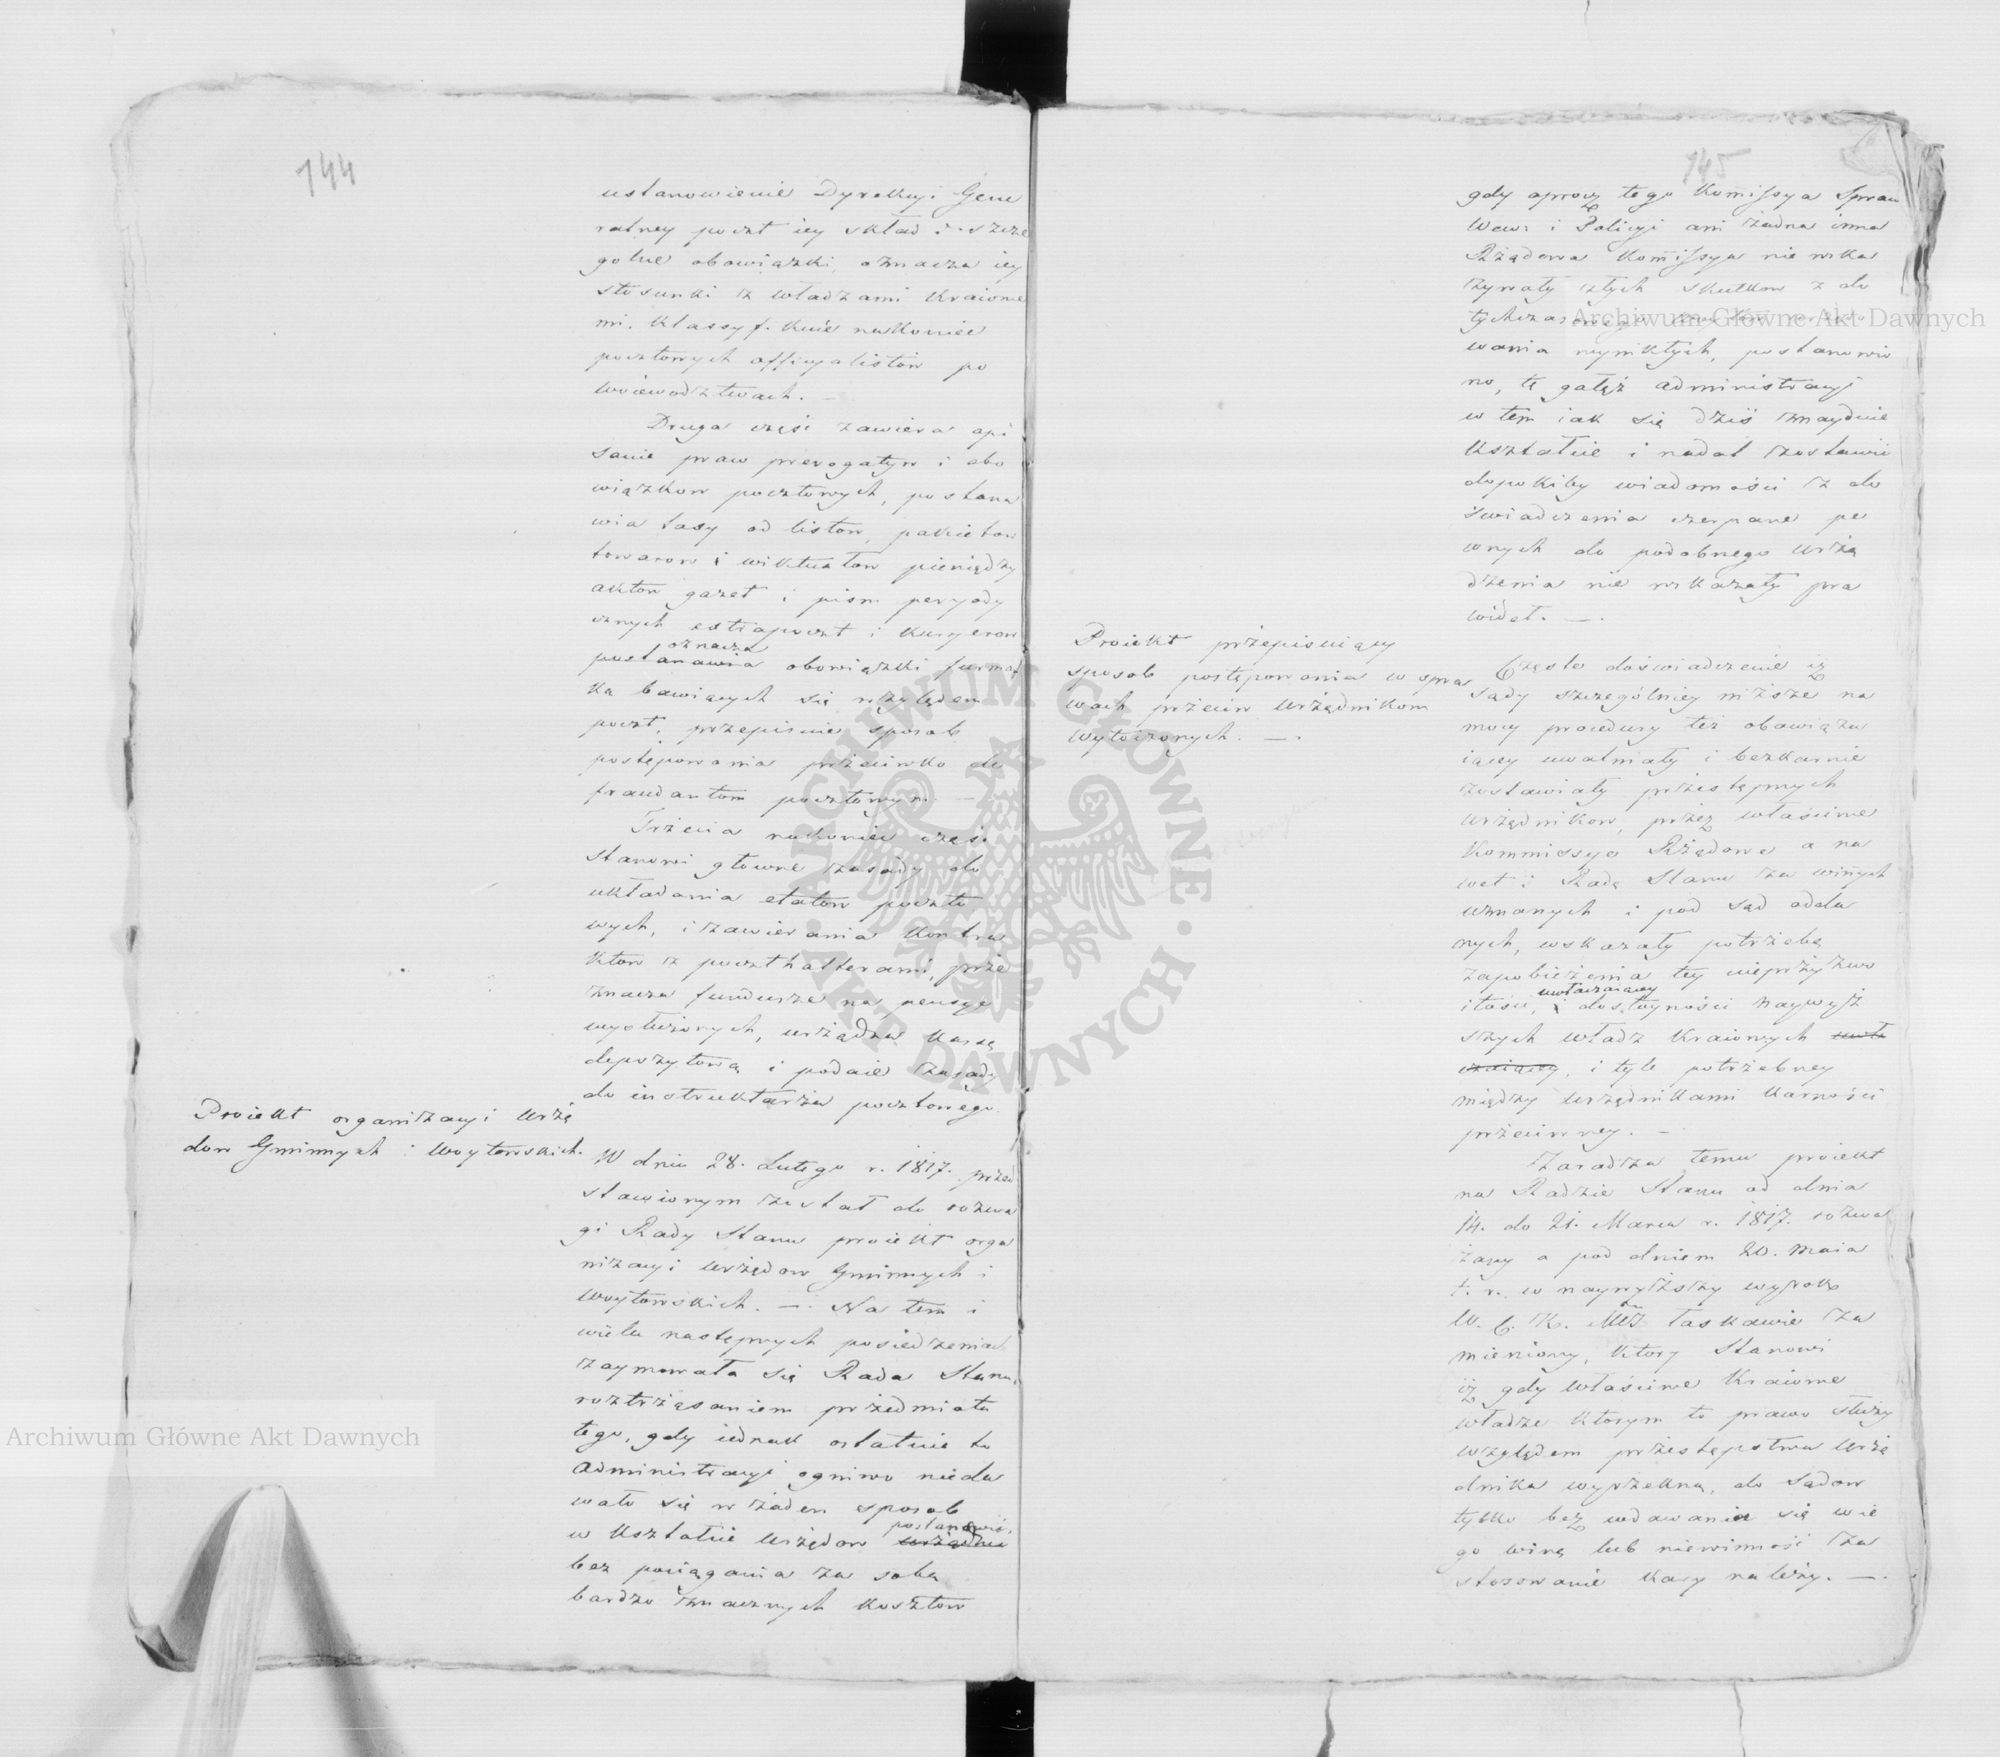 144
ustanowienie Dyrekcyi Gene
ralney poczt iey skład i szcze
golne obowiązki, oznacza iey
stosunki z władzami Kraiowe
mi. Klassyfikuie nakoniec
pocztowych officyalistow po
woiewodztwach. —
Druga część zawiera opi
sanie praw prerogatyw i obo
wiązkow pocztowych, postana
wia taxy od listow, pakietow
towarow i wiktuałow pieniędzy
aktow gazet i pism peryody
cznych estrapoczt i Kuryerow
oznacza
postanawia obowiązki furmań
ką bawiących się względem
poczt, przepisuie sposob
postępowania przeciwko de
fraudantom pocztowym. —
Trzecia nakoniec część
stanowi głowne zasady do
układania etatow poczto
wych, i zawierania Kontra
ktow z poczthalterami, prze
znacza fundusze na pensye
wysłużonych, urządza Kassę
depozytową i podaie zasady
do instruktarza pocztowego.
Proiekt organizacyi Urzę
dow Gminnych i Woytowskich.
W dniu 28. Lutego r. 1817. przed
stawionym został do rozwa
gi Rady Stanu proiekt orga
nizacyi urzędow Gminnych i
Woytowskich. —. Na tem i
wielu następnych posiedzeniach
zaymowała się Rada Stanu,
roztrząsaniem przedmiotu
tego, gdy iednak ostatnie to
administracyi ogniwo nieda
wało się w żaden sposob
postanowić
w Kształcie urzędow urządzić
bez pociągania za sobą
bardzo znacznych Kosztow
145
gdy oprocz tego Kommissya Spraw
Wew: i Policyi ani żadna inna
Rządowa Kommissya nie wska
zywały złych skutkow z do
tychczasowego
wania wynikłych, postanowio
no, tę gałęź administracyi
w tem iak się dziś znayduie
Kształcie i nadal zostawić
dopokiby wiadomości z do
świadczenia czerpane pe
wnych do podobnego urzą
dzenia nie wskazały pra
wideł. —.
Proiekt przepisuiący
sposob postępowania w spra
wach przeciw Urzędnikom
wytoczonych. —.
Częste doświadczenie iż
sądy szczególniey niższe na
mocy procedury też obowiązu
iącey uwalniały i bezkarnie
zostawiały przestępnych
urzędnikow, przez właściwe
Kommissye Rządowe a na
wet i Radę Stanu za winnych
uznanych i pod sąd odda
nych, wskazały potrzebę
zapobieżenia tey nieprzyzwo
uwłaczaiącey
itości, i dostoyności naywyż
szych władz Kraiowych uwła
czaiącey, i tyle potrzebney
między urzędnikami Karności
przeciwney. —
Zaradza temu proiekt
na Radzie Stanu od dnia
14. do 21. Marca r. 1817. rozwa
żany a pod dniem 20. Maia
t. r. w naywyższy wyrok
W. C. K. Mci łaskawie za
mieniony, Ktory Stanowi
iż gdy właściwe Kraiowe
władze Ktorym to prawo służy
względem przestępstwa Urzę
dnika wyrzekną, do Sądow
tylko bez wdawania się w ie
go winę lub niewinność za
stosowanie Kary należy. —.
Archiwum Główne Akt Dawnych
Archiwum Główne Akt Dawnych
ARCHIWUM GŁÓWNE · AKT DAWNYCH ·